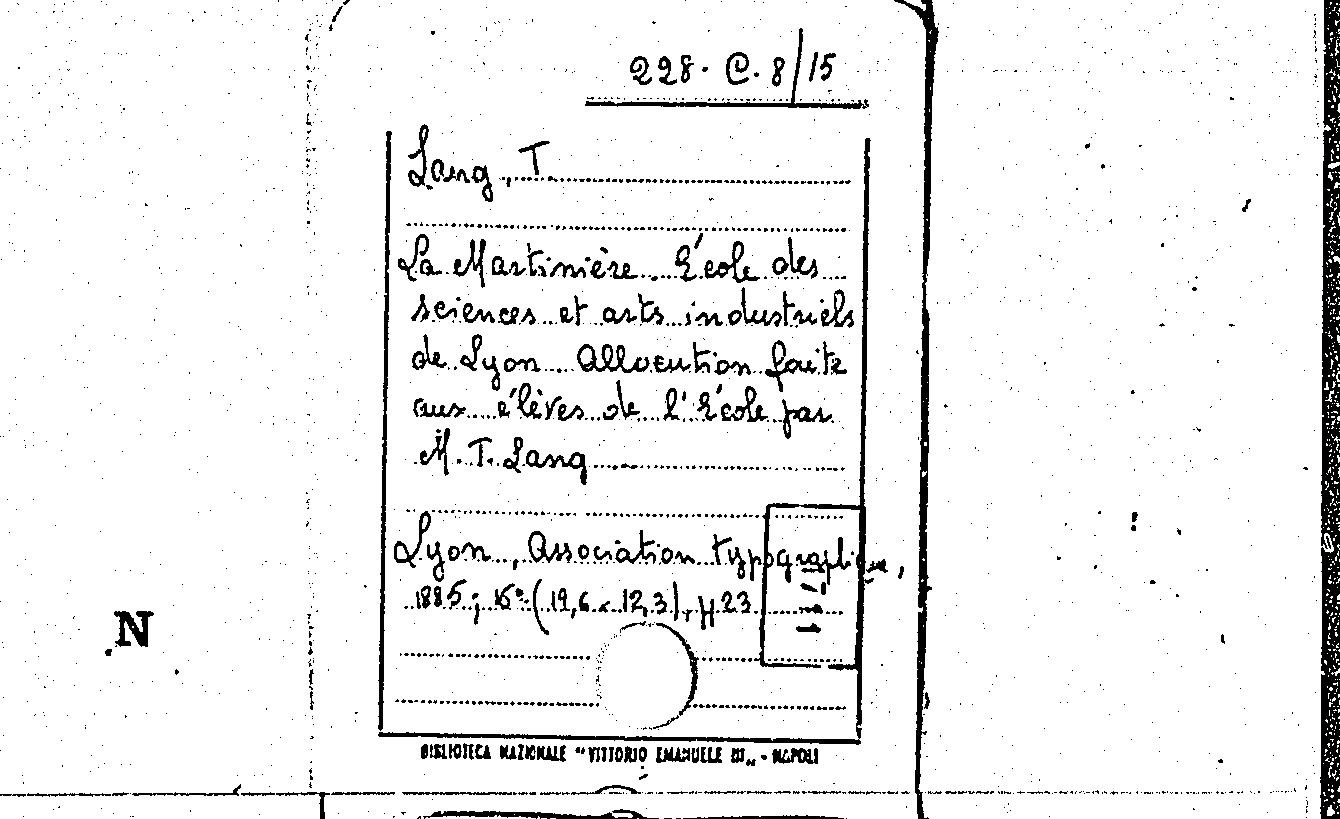 228. C. 8/15
Lang, T.
La Martinière. L'École des
sciences et arts industriels
de Lyon. Allocution faite
aux élèves de l'École par
M. T. Lang
Lyon, Association typographique,
1885; 16° (19,6 x 12,3), pp 23
N
BIBLIOTECA NAZIONALE "VITTORIO EMANUELE III„ - NAPOLI